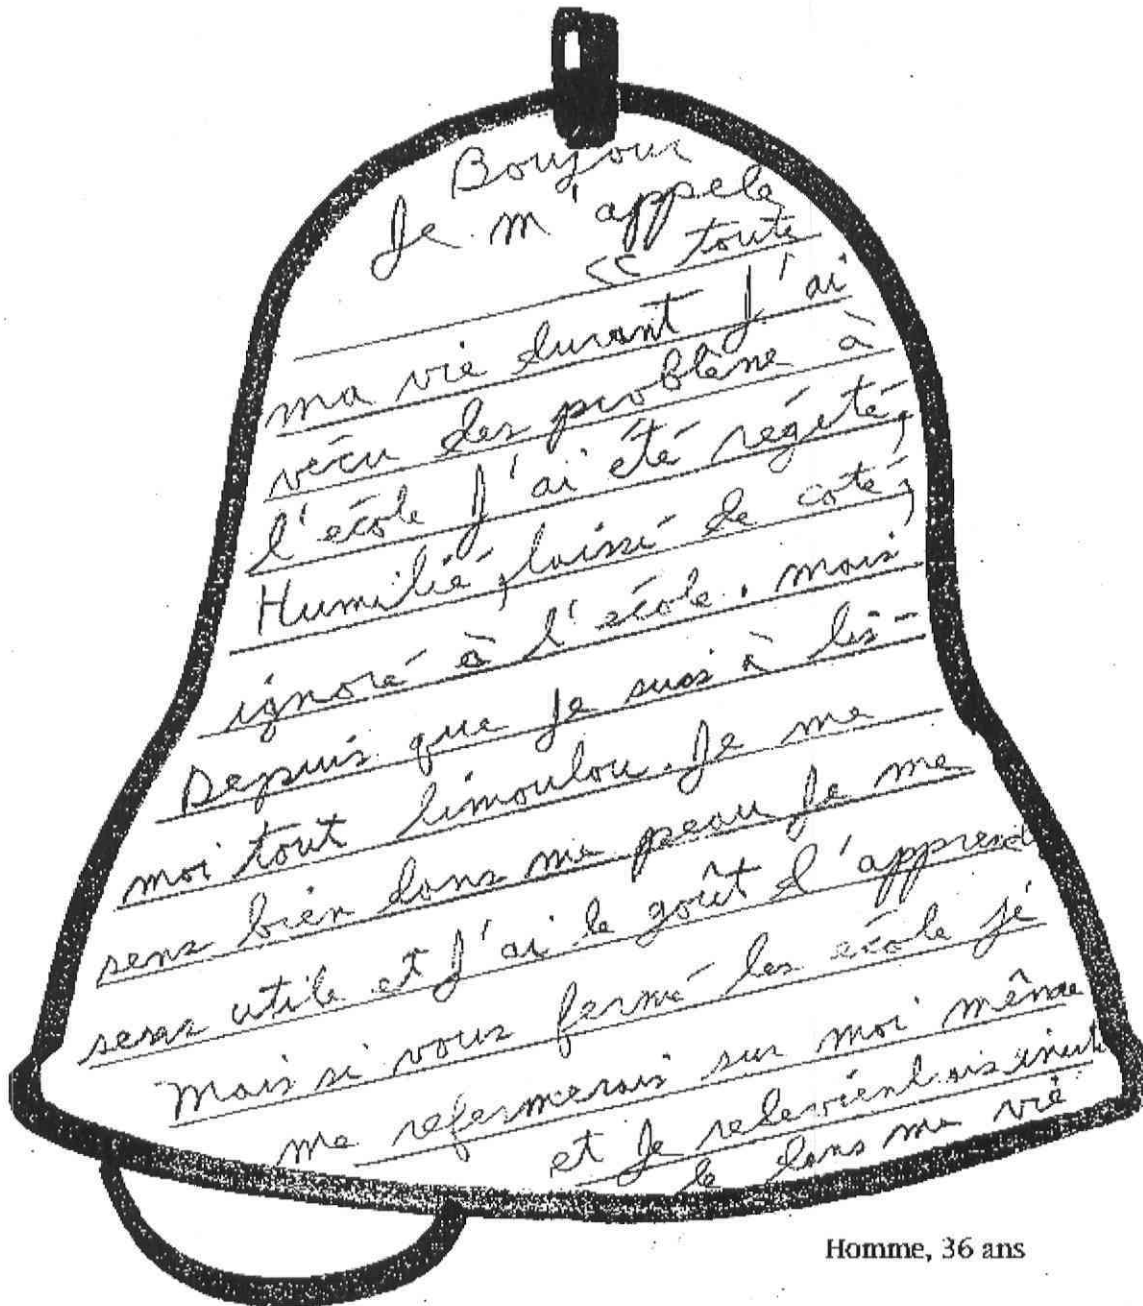 Boujour
Je m'appele
<< toute
ma vie durant J'ai
vécu des problème à
l'école J'ai été régété,
Humilié, laissé de coté,
ignoré à l'école. mais
Depuis que Je suis à lis-
moi tout limoulou. Je me
sens bien dans ma peau Je me
sens utile et J'ai le goût d'apprend
Mais si vous fermé les école jé
me refermerais sur moi même
et Je redeviendrais inuti
le dans ma vie
Homme, 36 ans